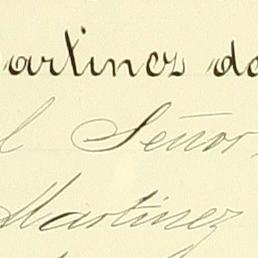 artinez de
l Señor
Martinez